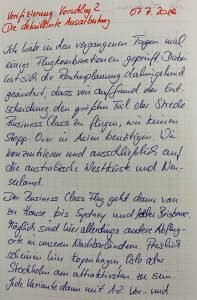 Verifizierung: Vorschlag 2 07.7.2018
Die detaillierte Ausarbeitung
Ich habe in den vergangenen Tagen mal
einige Flugkombinationen geprüft. Dabei
hat sich die Routenplanung dahingehend
geändert, dass wir aufgrund der Ent-
scheidung den größten Teil der Strecke
Business Class zu fliegen, wir keinen
Stopp Over in Asien benötigen. Wir
konzentrieren uns ausschließlich auf
die australische Westküste und Neu-
seeland.
Der Business Class Flug geht dann von
zu Hause bis Sydney und Brisbane.
sind hier allerdings andere Abflug-
orte in unseren Nachbarländern. Preislich
scheinen hier Kopenhagen, Oslo oder
Stockholm am attraktivsten zu sein.
Jede Variante dann mit 1-2 Vor- und